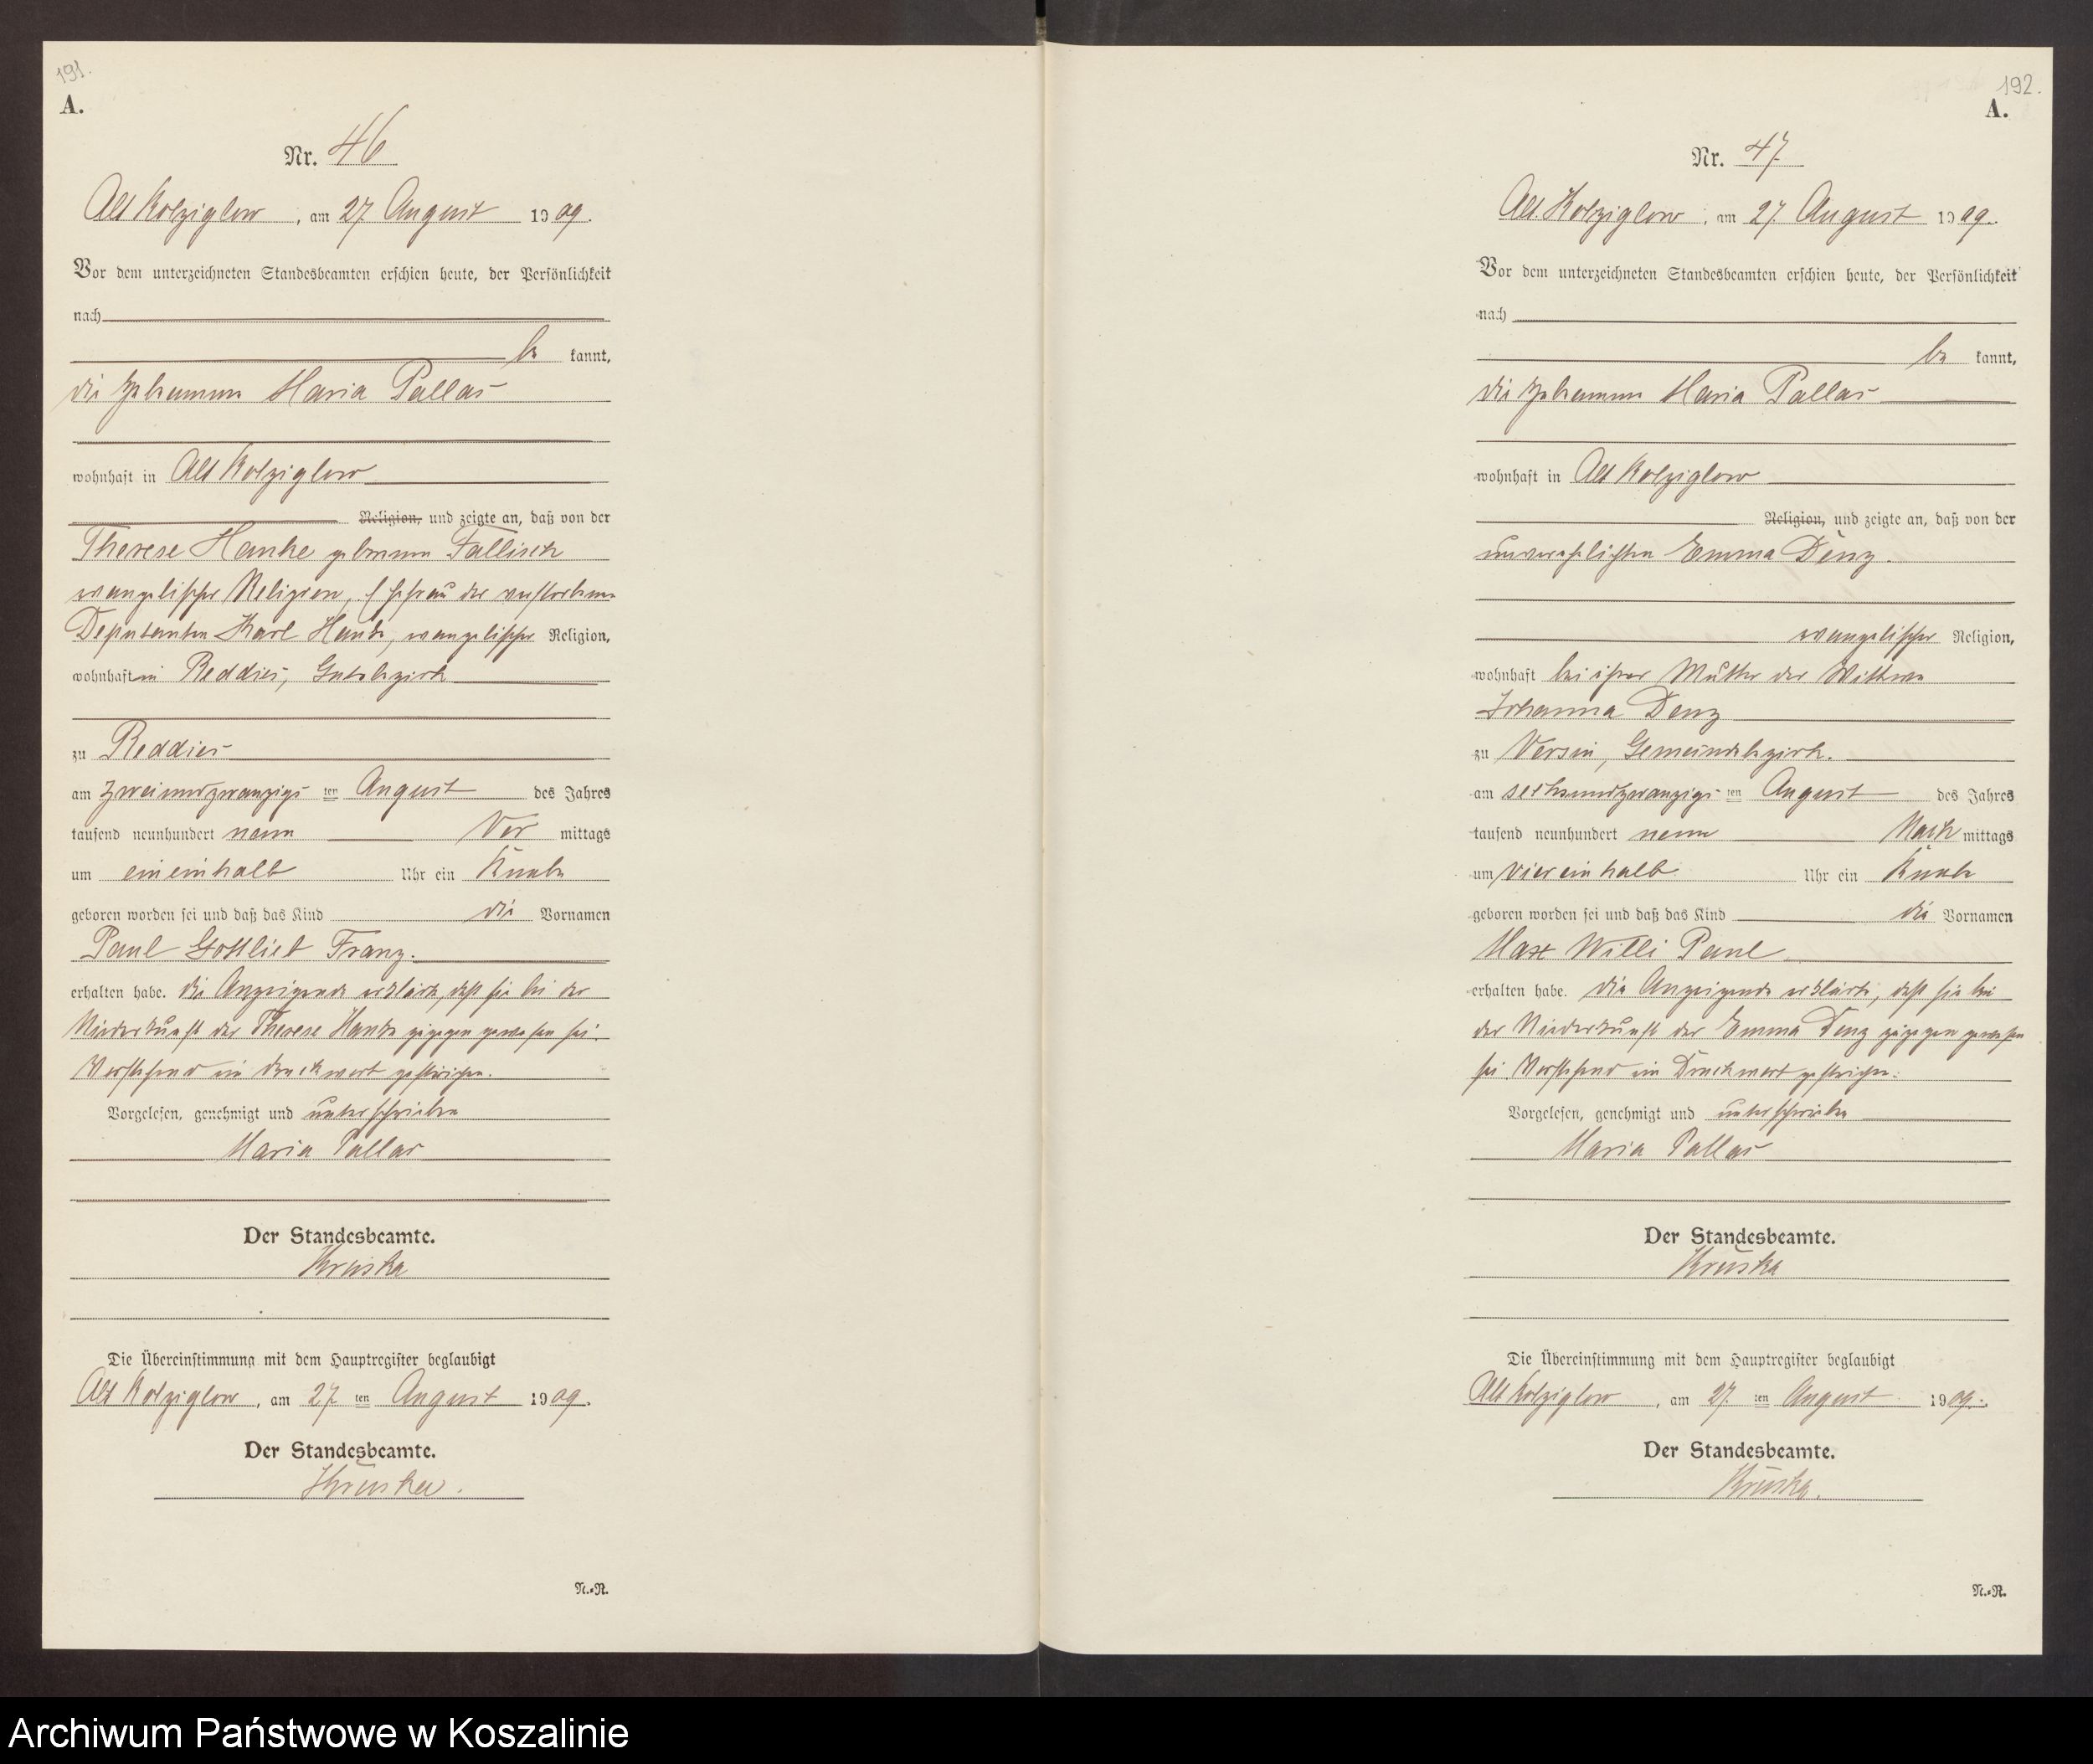 191.
A.
Nr. 46
Alt Kolziglow, am 27 August 1909.
Vor dem unterzeichneten Standesbeamten erschien heute, der Persönlichkeit
nach
be kannt,
die Hebamme Maria Pallas
wohnhaft in Alt Kolziglow
Religion, und zeigte an, daß von der
Therese Hanke geborenen Fallisch
evangelischer Religion, Ehefrau des verstorbenen
Deputanten Karl Hanke, evangelischer Religion,
wohnhaft in Reddies, Gutsbezirk
zu Reddies
am zweiundzwanzigsten August des Jahres
tausend neunhundert neun Vor mittags
um eineinhalb Uhr ein Knabe
geboren worden sei und daß das Kind die Vornamen
Paul Gottlieb Franz.
erhalten habe. Die Anzeigende erklärte, daß sie bei der
Niederkunft der Therese Hanke zugegen gewesen sei.
Vorstehend ein Druckwort gestrichen.
Vorgelesen, genehmigt und unterschrieben
Maria Pallas
Der Standesbeamte.
Kruska
Die Übereinstimmung mit dem Hauptregister beglaubigt
Alt Kolziglow, am 27 ten August 1909.
Der Standesbeamte.
Kruska.
N.-R.
192.
A.
Nr. 47
Alt. Kolziglow, am 27 August 1909.
Vor dem unterzeichneten Standesbeamten erschien heute, der Persönlichkeit
nach
be kannt,
die Hebamme Maria Pallas
wohnhaft in Alt Kolziglow
Religion, und zeigte an, daß von der
unverehelichten Emma Denz.
evangelischer Religion,
wohnhaft bei ihrer Mutter der Wittwe
Johanna Denz
zu Versin, Gemeindebezirk.
am sechsundzwanzigsten August des Jahres
tausend neunhundert neun Nach mittags
um viereinhalb Uhr ein Knabe
geboren worden sei und daß das Kind die Vornamen
Max Willi Paul
erhalten habe. Die Anzeigende erklärte, daß sie bei
der Niederkunft der Emma Denz zugegen gewesen
sei. Vorstehend ein Druckwort gestrichen.
Vorgelesen, genehmigt und unterschrieben
Maria Pallas
Der Standesbeamte.
Kruska
Die Übereinstimmung mit dem Hauptregister beglaubigt
Alt Kolziglow, am 27. ten August 1909.
Der Standesbeamte.
Kruska.
N.-R.
Archiwum Państwowe w Koszalinie